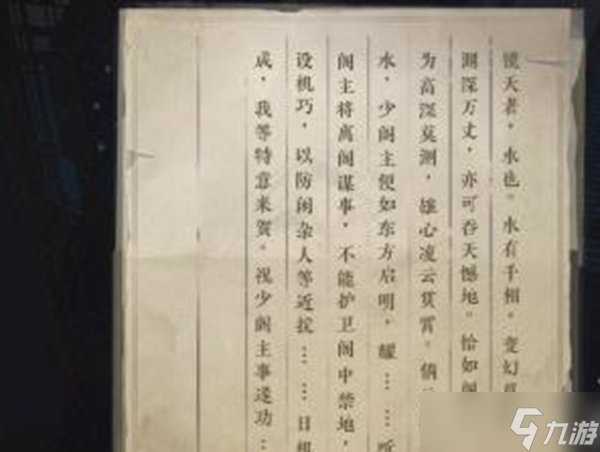 镜天者，水也。水有千相，变幻莫
渊深万丈，亦可吞天憾地。恰如阁
为高深莫测，雄心凌云贯霄。倘
水，少阁主便如东方启明，耀……所
阁主将离阁谋事，不能护卫阁中禁地，
设机巧，以防闲杂人等近扰……日机
成，我等特意来贺。祝少阁主事遂功…
九游